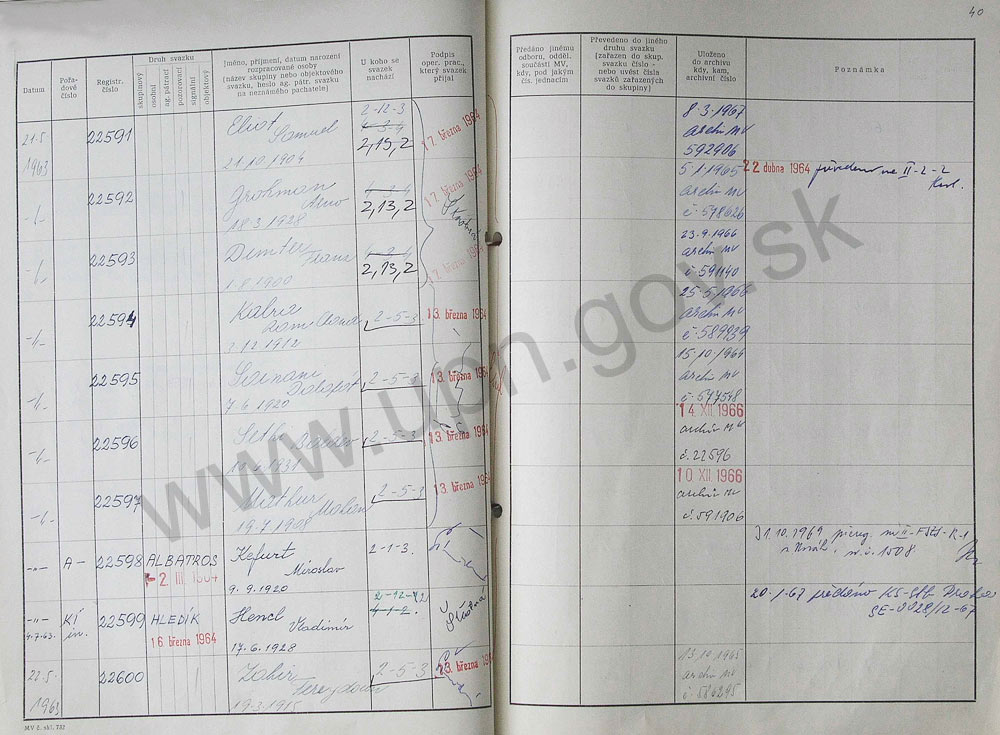 40
Datum
Pořadové číslo
Registr. číslo
Druh svazku
skupinový
osobní
ag. pátrací
pozorovací
signální
objektový
Jméno, příjmení, datum narození
rozpracované osoby
(název skupiny nebo objektového
svazku, heslo ag. pátr. svazku
na neznámého pachatele)
U koho se
svazek
nachází
Podpis
oper. prac.,
který svazek
přijal
Předáno jinému
odboru, odděl.
součásti MV,
kdy, pod jakým
čís. jednacím
Převedeno do jiného
druhu svazku
(zařazen do skup.
svazku číslo -
nebo uvést čísla
svazků zařazených
do skupiny)
Uloženo
do archivu
kdy, kam,
archivní číslo
Poznámka
21.5.
1963
22591
Eliot
Samuel
21.10.1904
2-12-3
4-3-4
2,13,2
17. března 1964
8.3.1967
archiv MV
592906
22592
Grohman
18.3.1928
2,13,2
17. března 1964
5.1.1965
archiv MV
č 578626
22 dubna 1964 převedeno na II-2-2
22593
1.8.1900
2,13,2
17. března 1964
23.9.1966
archiv MV
č 591140
22594
3.12.1912
2-5-3
13. března 1964
25.5.1966
archiv MV
č 589939
22595
7.6.1920
2-5-3
13. března 1964
15.10.1964
archiv MV
č 577548
22596
Seth
2-5-3
13. března 1964
14. XII. 1966
archiv MV
č. 22596
22597
Mathur
Mohan
19.7.1908
2-5-3
13. března 1964
10. XII. 1966
archiv MV
č. 591906
A-
22598
ALBATROS
-2. III. 1964
Kefurt
Miroslav
9.9.1920
2-1-3.
-"-
4.7.63.
22599
HLEDÍK
16. března 1964
Hencl
Vladimír
17.6.1928
2-12-12
4-1-2.
Šťastná
20.1.67 předáno KS-StB Praha
SE-0028/12-67
22.5.
1963
22600
Zahir
19.3.1915
2-5-3
23. března 1964
13.10.1965
archiv MV
č 586295
MV č. skl. 732
www.upn.gov.sk